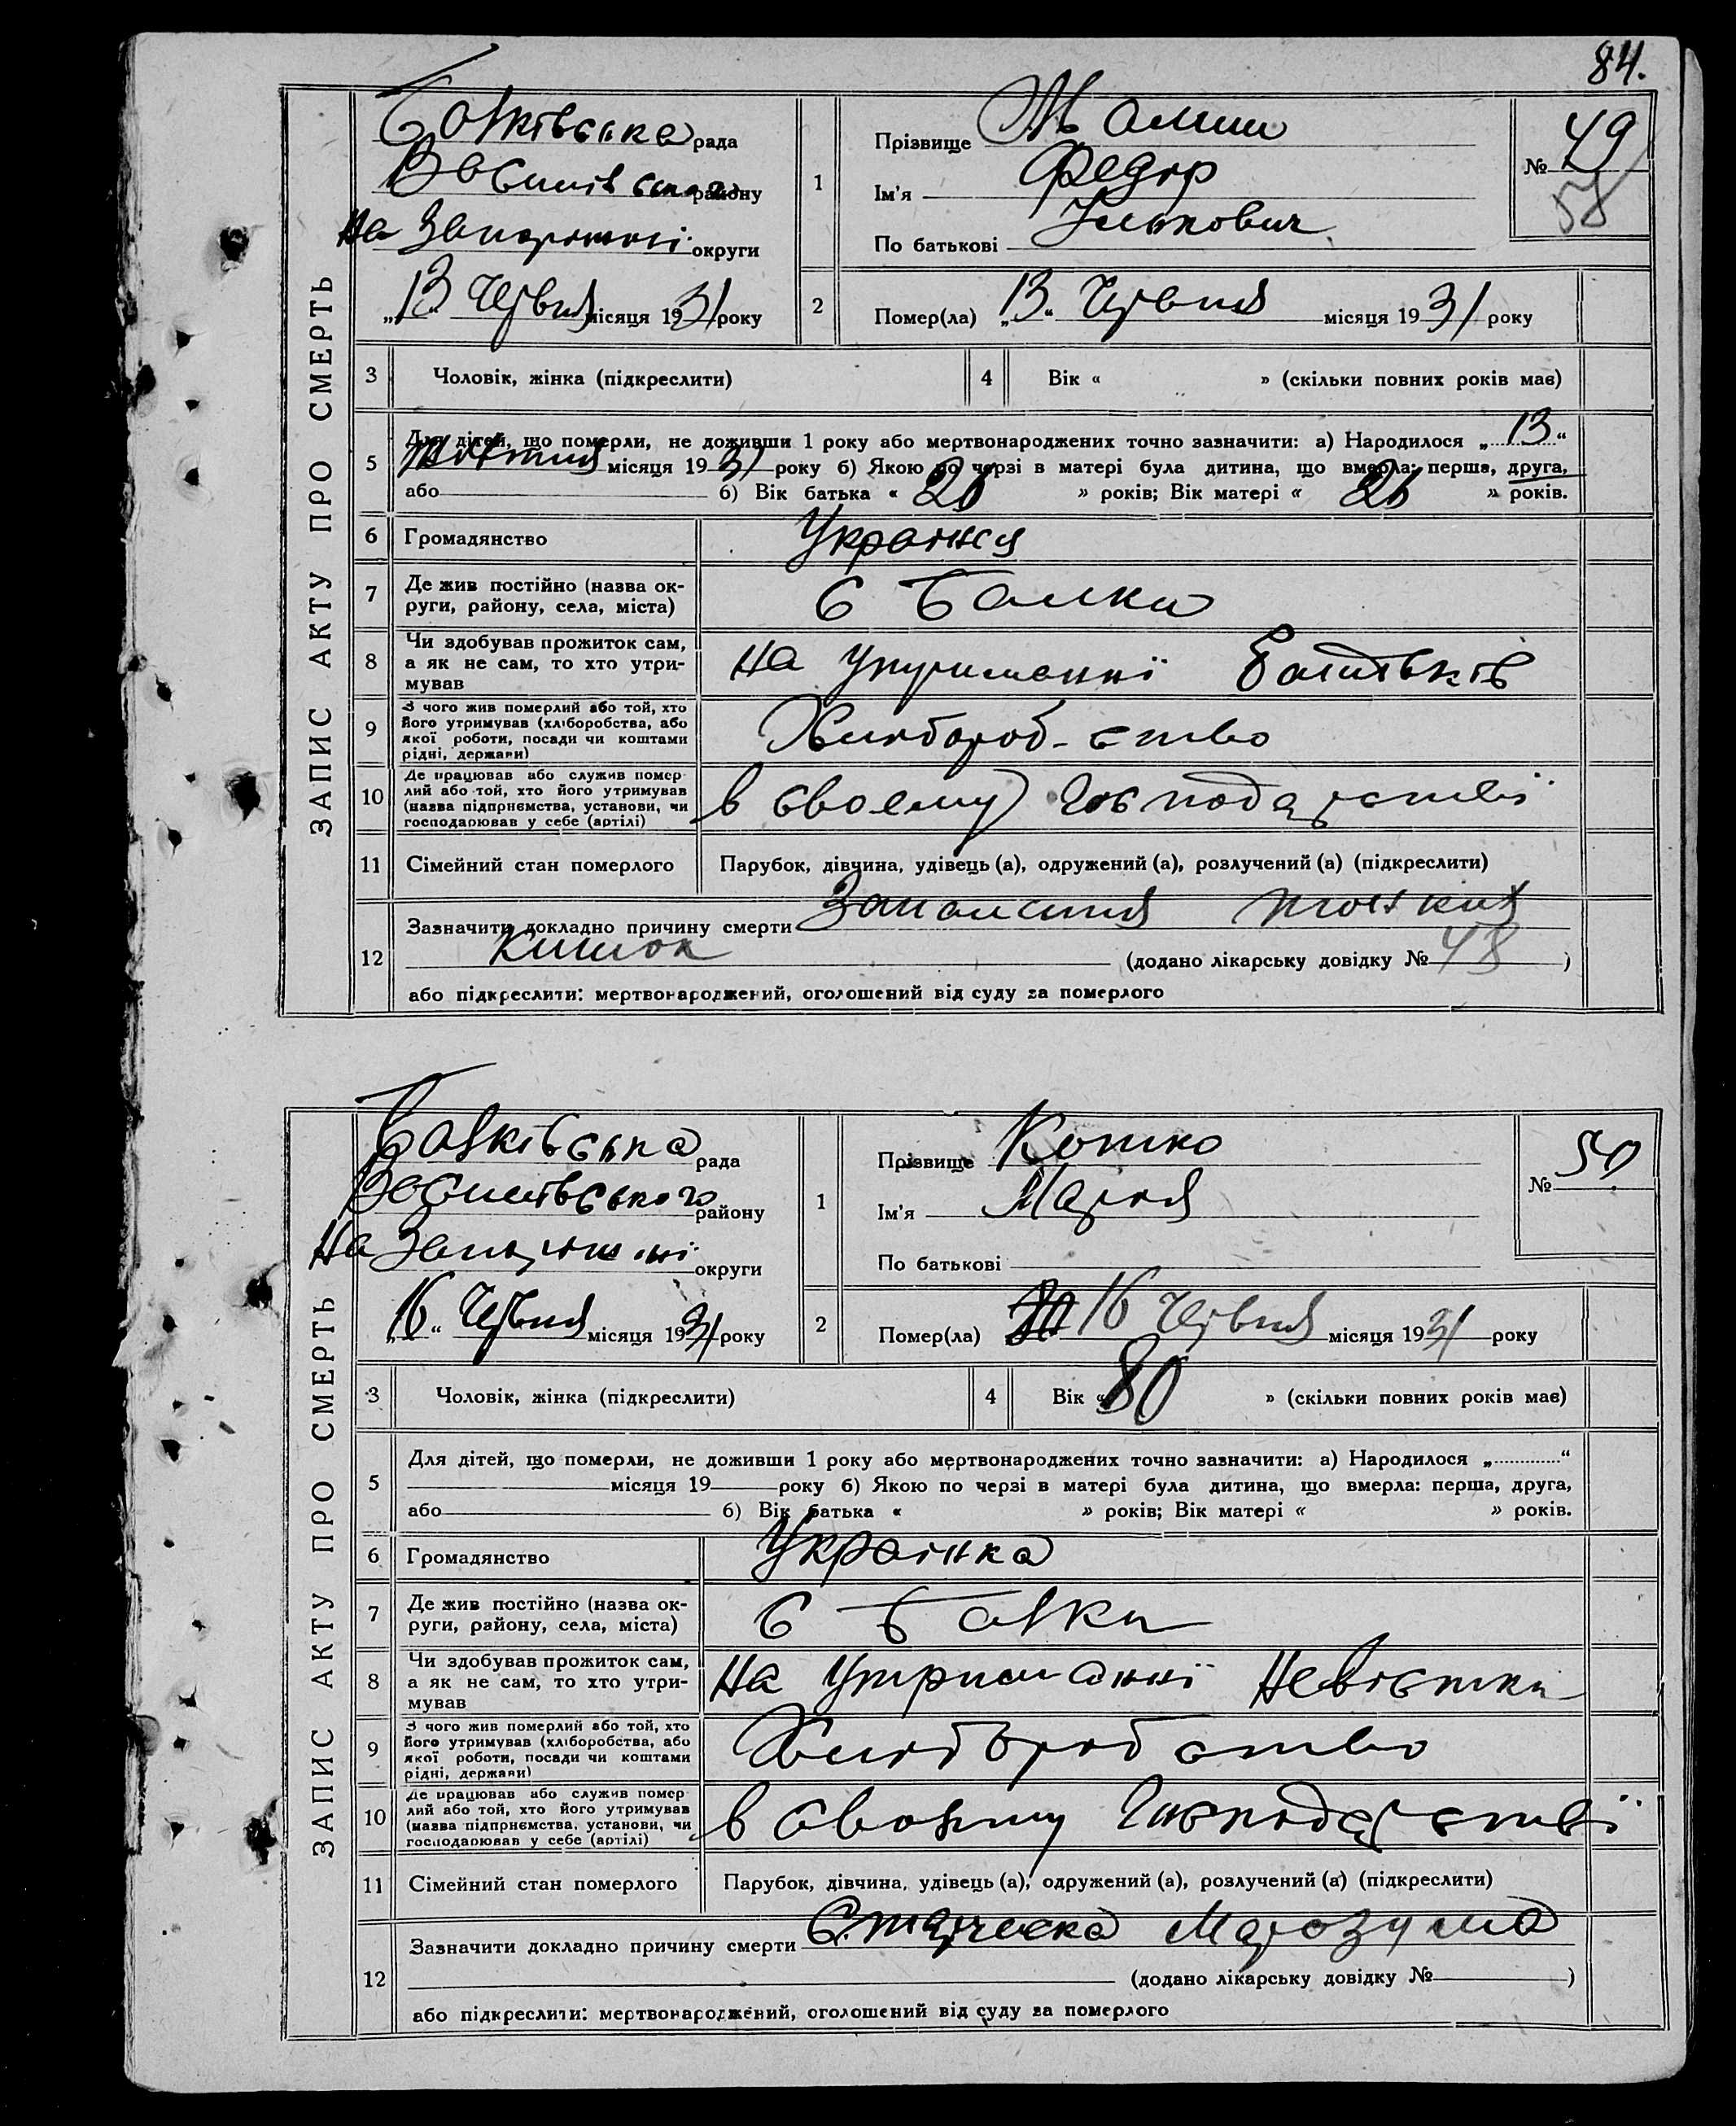 84.
ЗАПИС АКТУ ПРО СМЕРТЬ
Балківська рада
Василівського району
На Запоріжжі округи
„13“ Червня місяця 1931 року
1
Прізвище Малиш
Ім'я Федір
По батькові Ількович
№ 49
58
2
Помер(ла) „13“ Червня місяця 1931 року
3 Чоловік, жінка (підкреслити)
4 Вік « » (скільки повних років має)
5 Для дітей, що померли, не доживши 1 року або мертвонароджених точно зазначити: а) Народилося „13“
Жовтня місяця 1931 року б) Якою по черзі в матері була дитина, що вмерла: перша, друга,
або б) Вік батька « 26 » років; Вік матері « 26 » років.
6 Громадянство
7 Де жив постійно (назва ок-
руги, району, села, міста) с Балки
8 Чи здобував прожиток сам,
а як не сам, то хто утри-
мував На утриманні Батьків
9 З чого жив померлий або той, хто
його утримував (хліборобства, або
якої роботи, посади чи коштами
рідні, держави) Хлібороб-ство
10 Де працював або служив помер-
лий або той, хто його утримував
(назва підприємства, установи, чи
господарював у себе (артілі) в своему Господарстві
11 Сімейний стан померлого Парубок, дівчина, удівець (а), одружений (а), розлучений (а) (підкреслити)
12 Зазначити докладно причину смерти Запалення тонких
Кишок (додано лікарську довідку № 48 )
або підкреслити: мертвонароджений, оголошений від суду за померлого
ЗАПИС АКТУ ПРО СМЕРТЬ
Балківська рада
Василівського району
На Запоріжжі округи
„16“ Червня місяця 1931 року
1
Прізвище Котко
Ім'я Марія
По батькові
№ 50
2
Помер(ла) 16 Червня місяця 1931 року
3 Чоловік, жінка (підкреслити)
4 Вік « 80 » (скільки повних років має)
5 Для дітей, що померли, не доживши 1 року або мертвонароджених точно зазначити: а) Народилося „ “
місяця 19 року б) Якою по черзі в матері була дитина, що вмерла: перша, друга,
або б) Вік батька « » років; Вік матері « » років.
6 Громадянство Українка
7 Де жив постійно (назва ок-
руги, району, села, міста) с Балки
8 Чи здобував прожиток сам,
а як не сам, то хто утри-
мував На утриманні Невістки
9 З чого жив померлий або той, хто
його утримував (хліборобства, або
якої роботи, посади чи коштами
рідні, держави) Хліборобство
10 Де працював або служив помер-
лий або той, хто його утримував
(назва підприємства, установи, чи
господарював у себе (артілі) в своєму Господарстві
11 Сімейний стан померлого Парубок, дівчина, удівець (а), одружений (а), розлучений (а) (підкреслити)
12 Зазначити докладно причину смерти Старческа Маразума
(додано лікарську довідку № )
або підкреслити: мертвонароджений, оголошений від суду за померлого